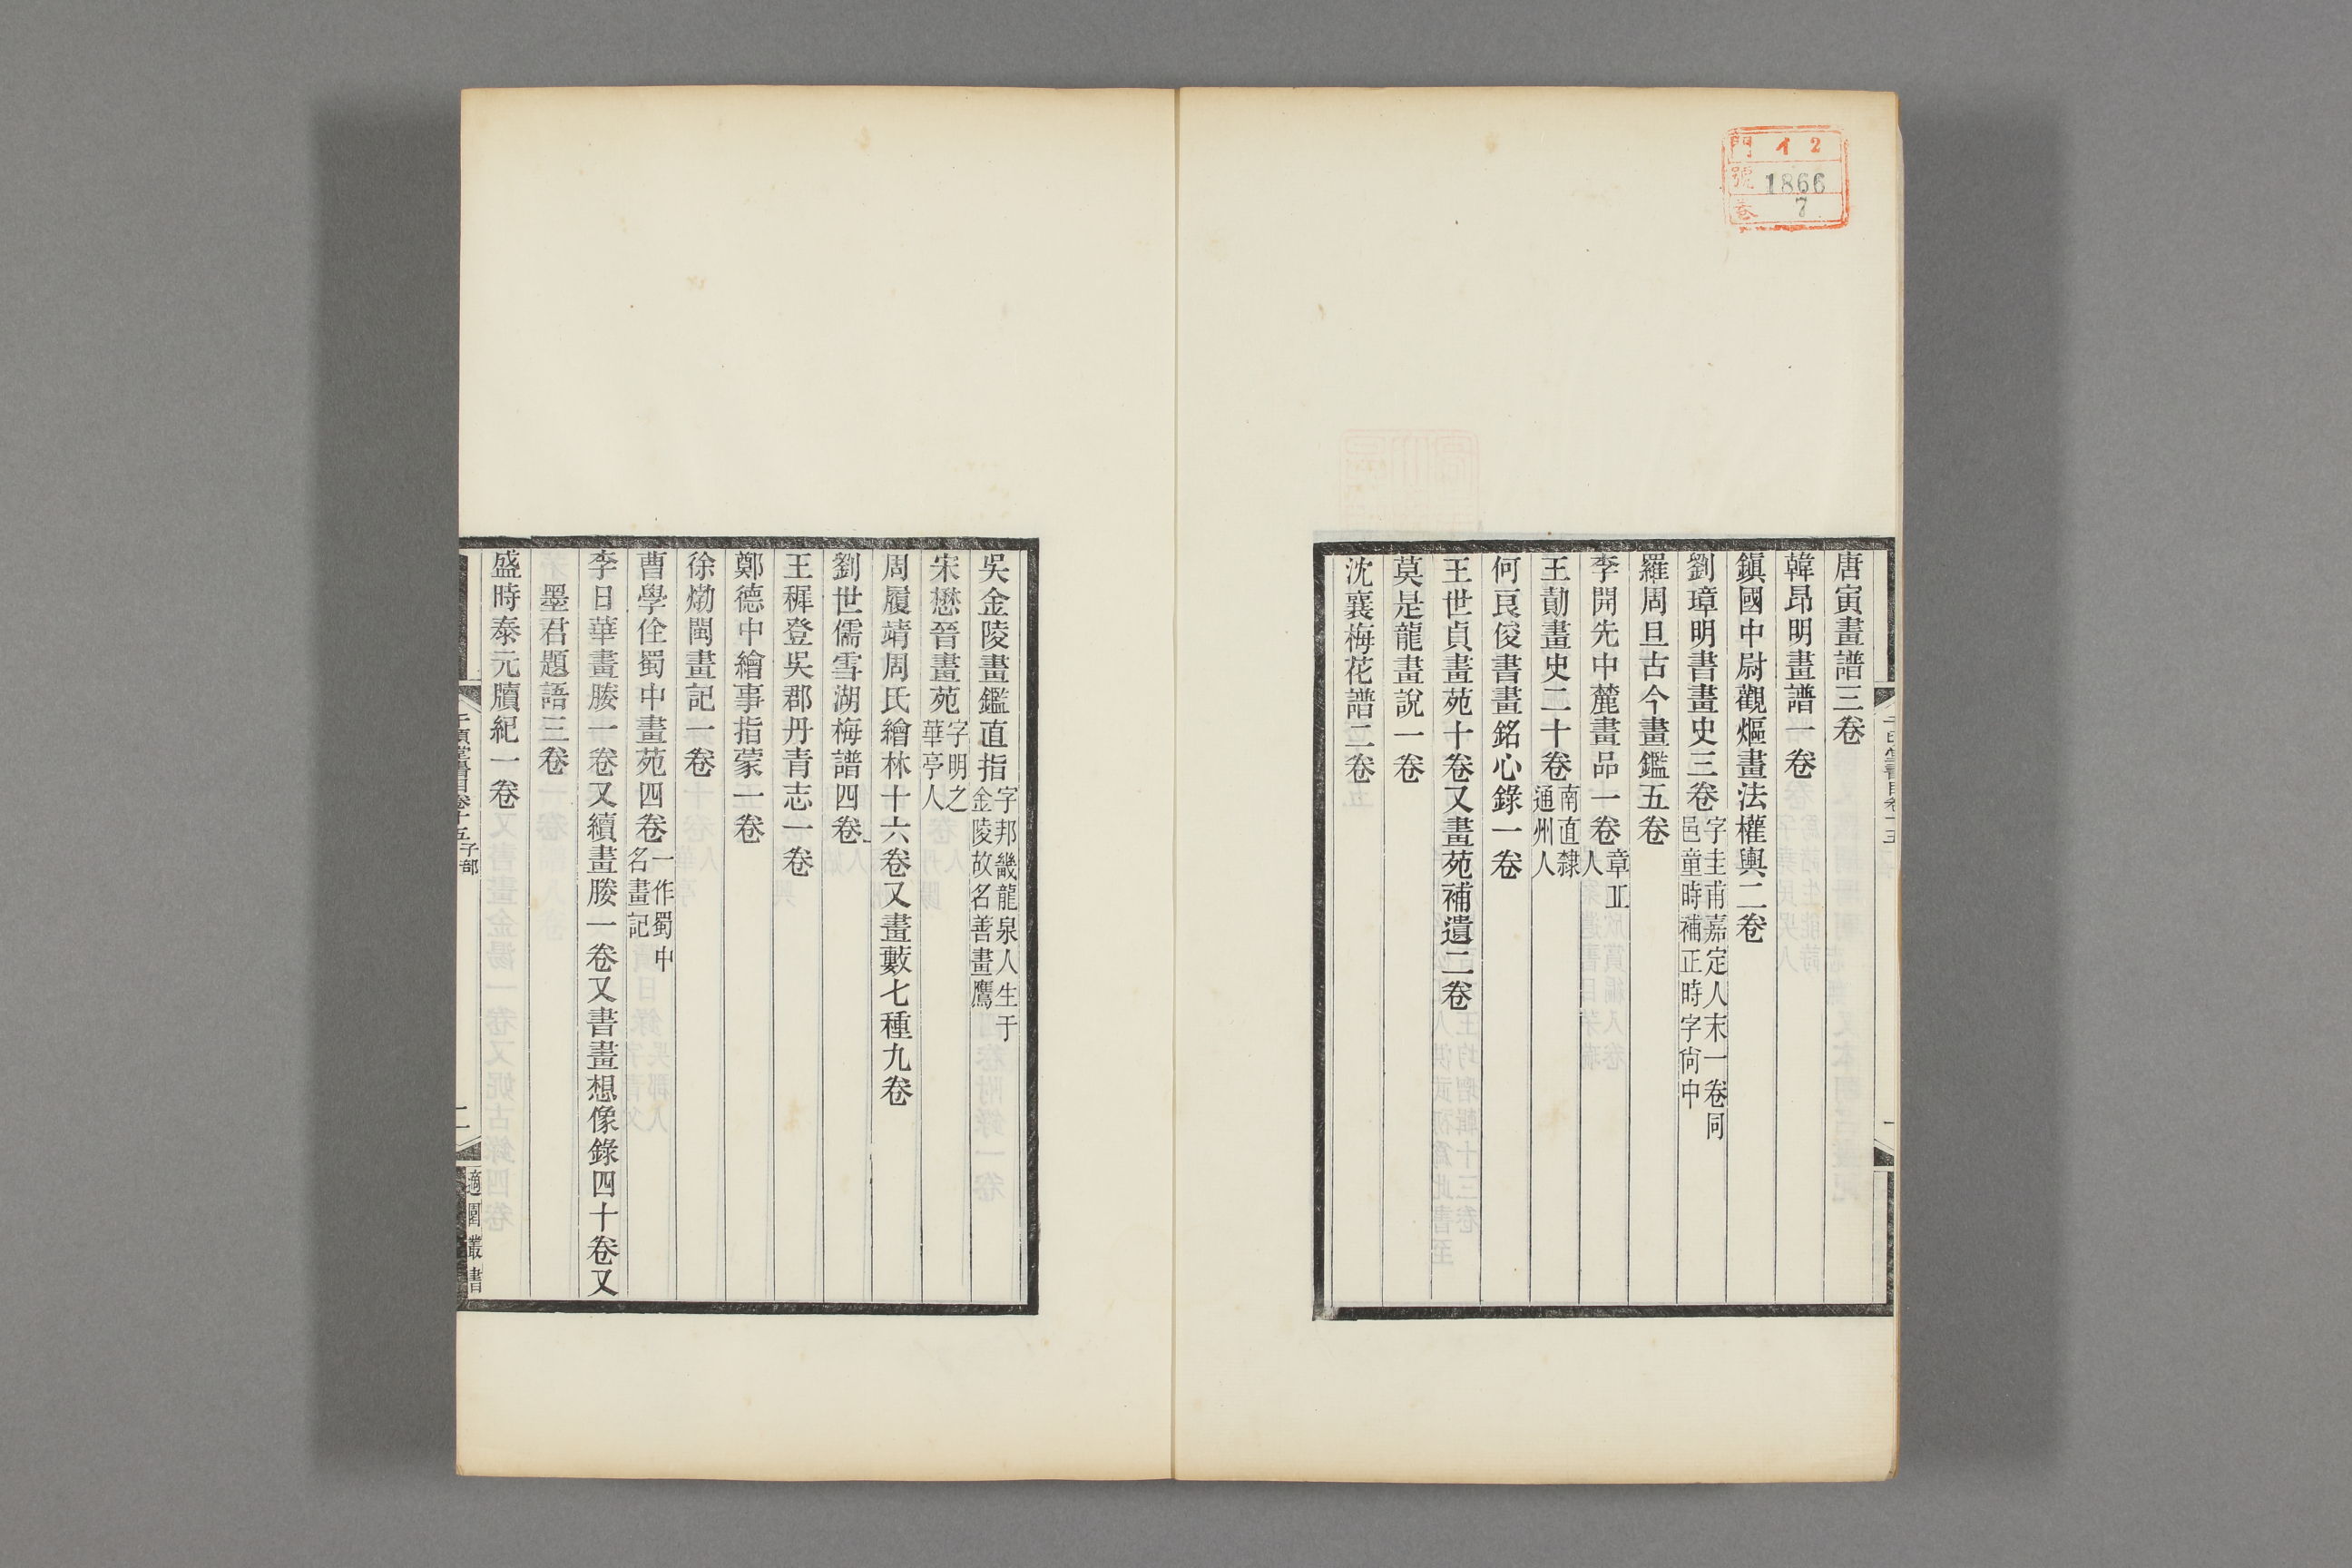 門 イ 2
號 1866
卷 7
唐寅畫譜三卷
韓昂明畫譜一卷
鎭國中尉觀𤊟畫法權輿二卷
劉璋明書畫史三卷字圭甫嘉定人末一卷同
邑童時補正時字尙中
羅周旦古今畫鑑五卷
李開先中麓畫品一卷章丘
人
王勣畫史二十卷南直隸
通州人
何良俊書畫銘心錄一卷
王世貞畫苑十卷又畫苑補遺二卷
莫是龍畫說一卷
沈襄梅花譜二卷
吳金陵畫鑑直指字邦畿龍泉人生于
金陵故名善畫鷹
宋懋晉畫苑字明之
華亭人
周履靖周氏繪林十六卷又畫藪七種九卷
劉世儒雪湖梅譜四卷
王穉登吳郡丹青志一卷
鄭德中繪事指蒙一卷
徐𤊹閩畫記一卷
曹學佺蜀中畫苑四卷一作蜀中
名畫記
李日華畫媵一卷又續畫媵一卷又書畫想像錄四十卷又
墨君題語三卷
盛時泰元牘紀一卷
千頃堂書目卷十五 子部
二
適園叢書